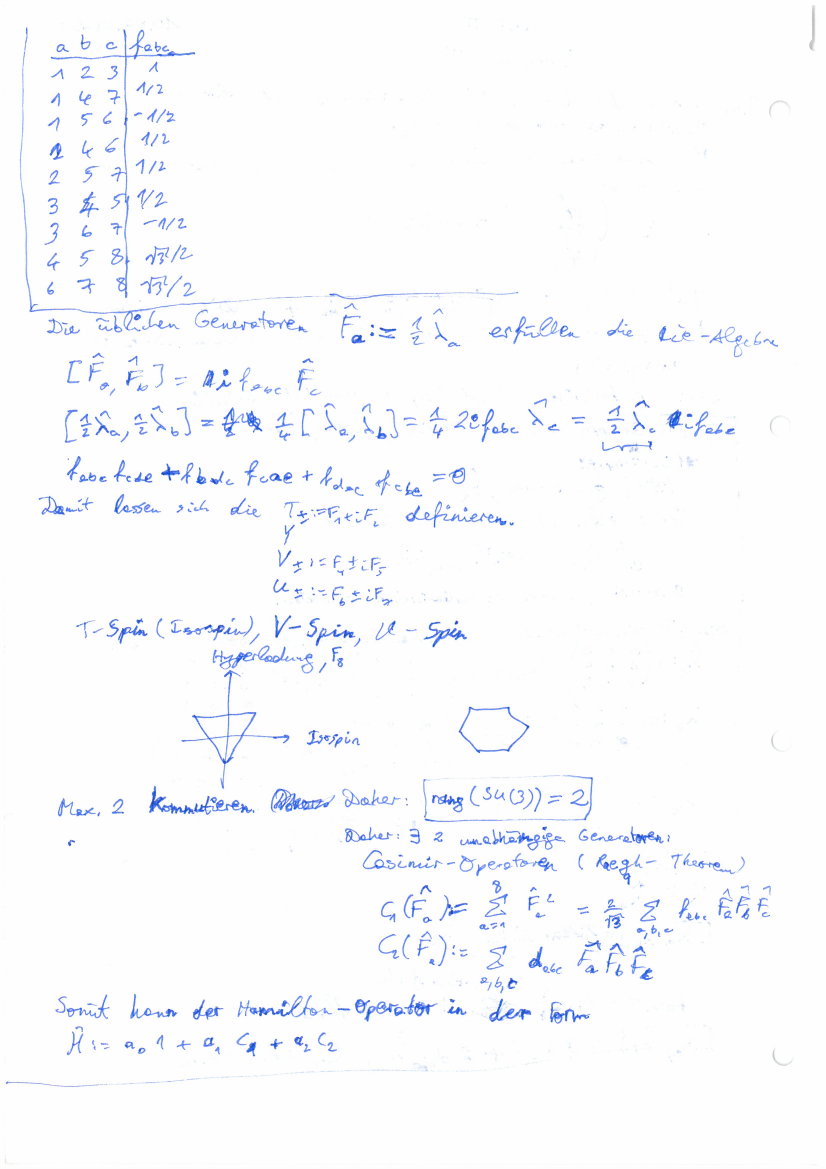 a b c f_abc
1 2 3 1
1 4 7 1/2
1 5 6 -1/2
2 4 6 1/2
2 5 7 1/2
3 4 5 1/2
3 6 7 -1/2
4 5 8 √3/2
6 7 8 √3/2
Die üblichen Generatoren F̂_a := 1/2 λ̂_a erfüllen die Lie-Algebra
[F̂_a, F̂_b] = i f_abc F̂_c
[1/2 λ̂_a, 1/2 λ̂_b] = 1/4 [λ̂_a, λ̂_b] = 1/4 2i f_abc λ̂_c = 1/2 λ̂_c i f_abc
f_abc f_cde + f_bdc f_cae + f_dac f_cbe = 0
Damit lassen sich die T_± := F_1 ± i F_2 definieren.
Y
V_± := F_4 ± i F_5
U_± := F_6 ± i F_7
T-Spin (Isospin), V-Spin, U-Spin
Hyperladung, F_8
Isospin
Max. 2 Kommutieren. Daher: rang(SU(3)) = 2
Daher: ∃ 2 unabhängige Generatoren:
Casimir-Operatoren (Theorem)
C_1(F̂_a) := Σ_{a=1}^{8} F̂_a² = 2/√3 Σ_{a,b,c} f_abc F̂_a F̂_b F̂_c
C_2(F̂_a) := Σ_{a,b,c} d_abc F̂_a F̂_b F̂_c
Somit kann der Hamilton-Operator in der Form
Ĥ := a_0 1 + a_1 C_1 + a_2 C_2